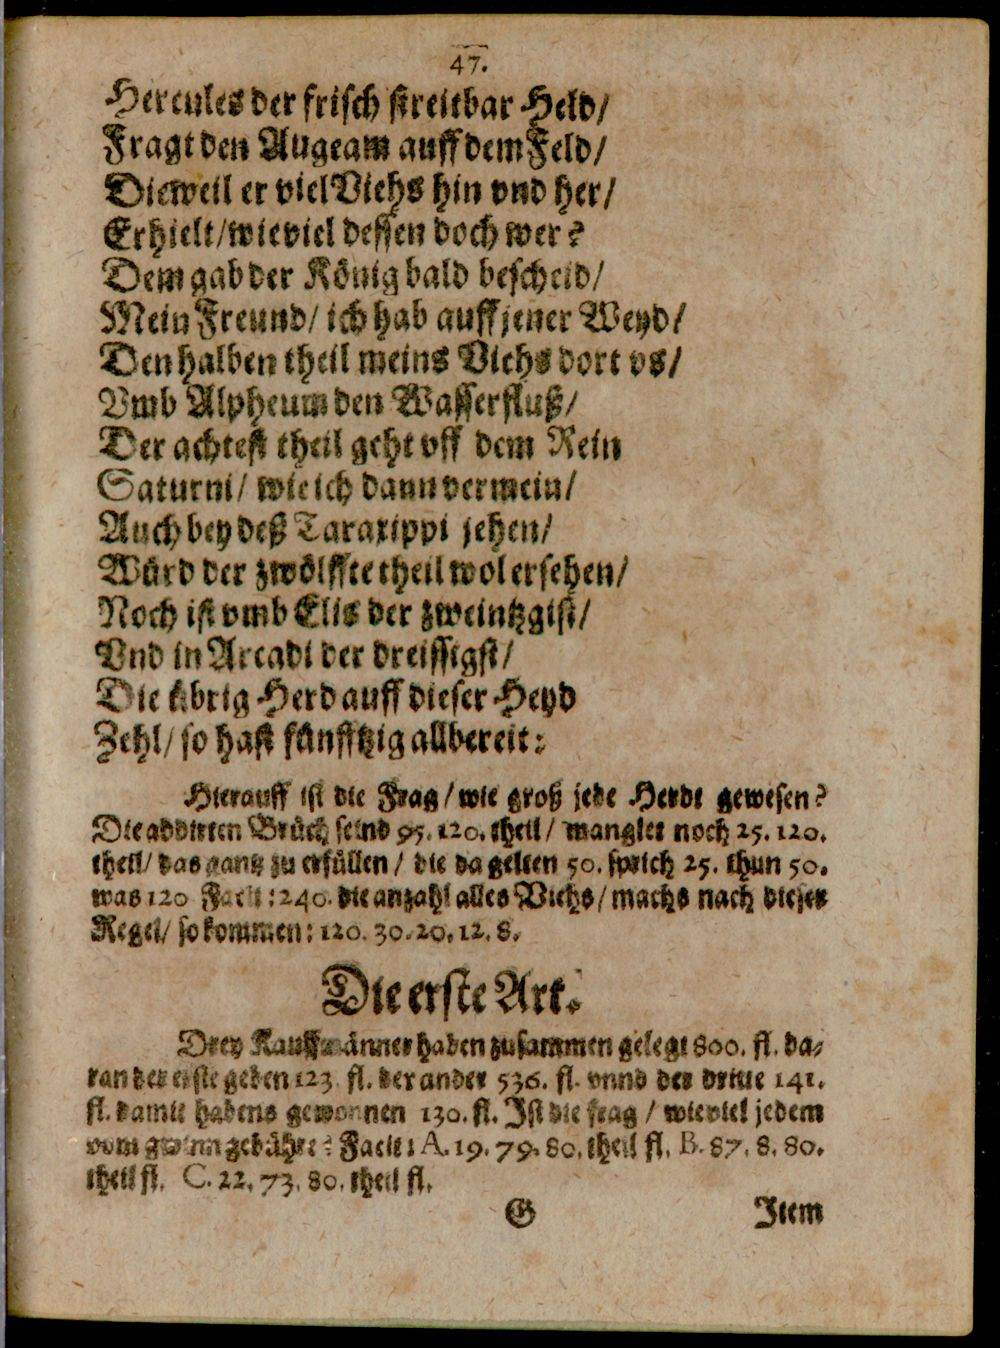 47.
Hercules der frisch streitbar Held/
Fragt den Augeam auff dem Feld/
Dieweil er viel Viehs hin vnd her/
Erhielt/wieviel dessen doch wer?
Dem gab der König bald bescheid/
Mein Freund/ ich hab auff jener Weyd/
Den halben theil meins Viehs dort vs/
Vmb Alpheum den Wasserfluß/
Der achtest theil geht vff dem Rein
Saturni/ wie ich dann vermein/
Auch bey deß Taraxippi jehen/
Würd der zwölffte theil wol ersehen/
Noch ist vmb Elis der zweintzgist/
Vnd in Arcadi der dreissigst/
Die übrig Herd auff dieser Heyd
Zehl/ so hast fünfftzig allbereit:
Hierauff ist die Frag/wie groß jede Herde gewesen?
Die addirten Brüch seind 95. 120. theil/ manglet noch 25. 120.
theil/ das gantz zu erfüllen/ die da gelten 50. sprich 25. thun 50.
was 120 Facit: 240. die anzahl alles Viehs/ machs nach dieser
Regel/ so kommen: 120. 30. 20. 12. 8.
Die erste Art.
Drey Kauffmänner haben zusammen gelegt 800. fl. da-
ran der erste geben 123 fl. der ander 536. fl. vnnd der dritte 141.
fl. damit habens gewonnen 130. fl. Ist die frag/ wieviel jedem
vom gewinn gebühre? Facit: A. 19. 79. 80. theil fl. B. 87. 8. 80.
theil fl. C. 22. 73. 80. theil fl.
G Item